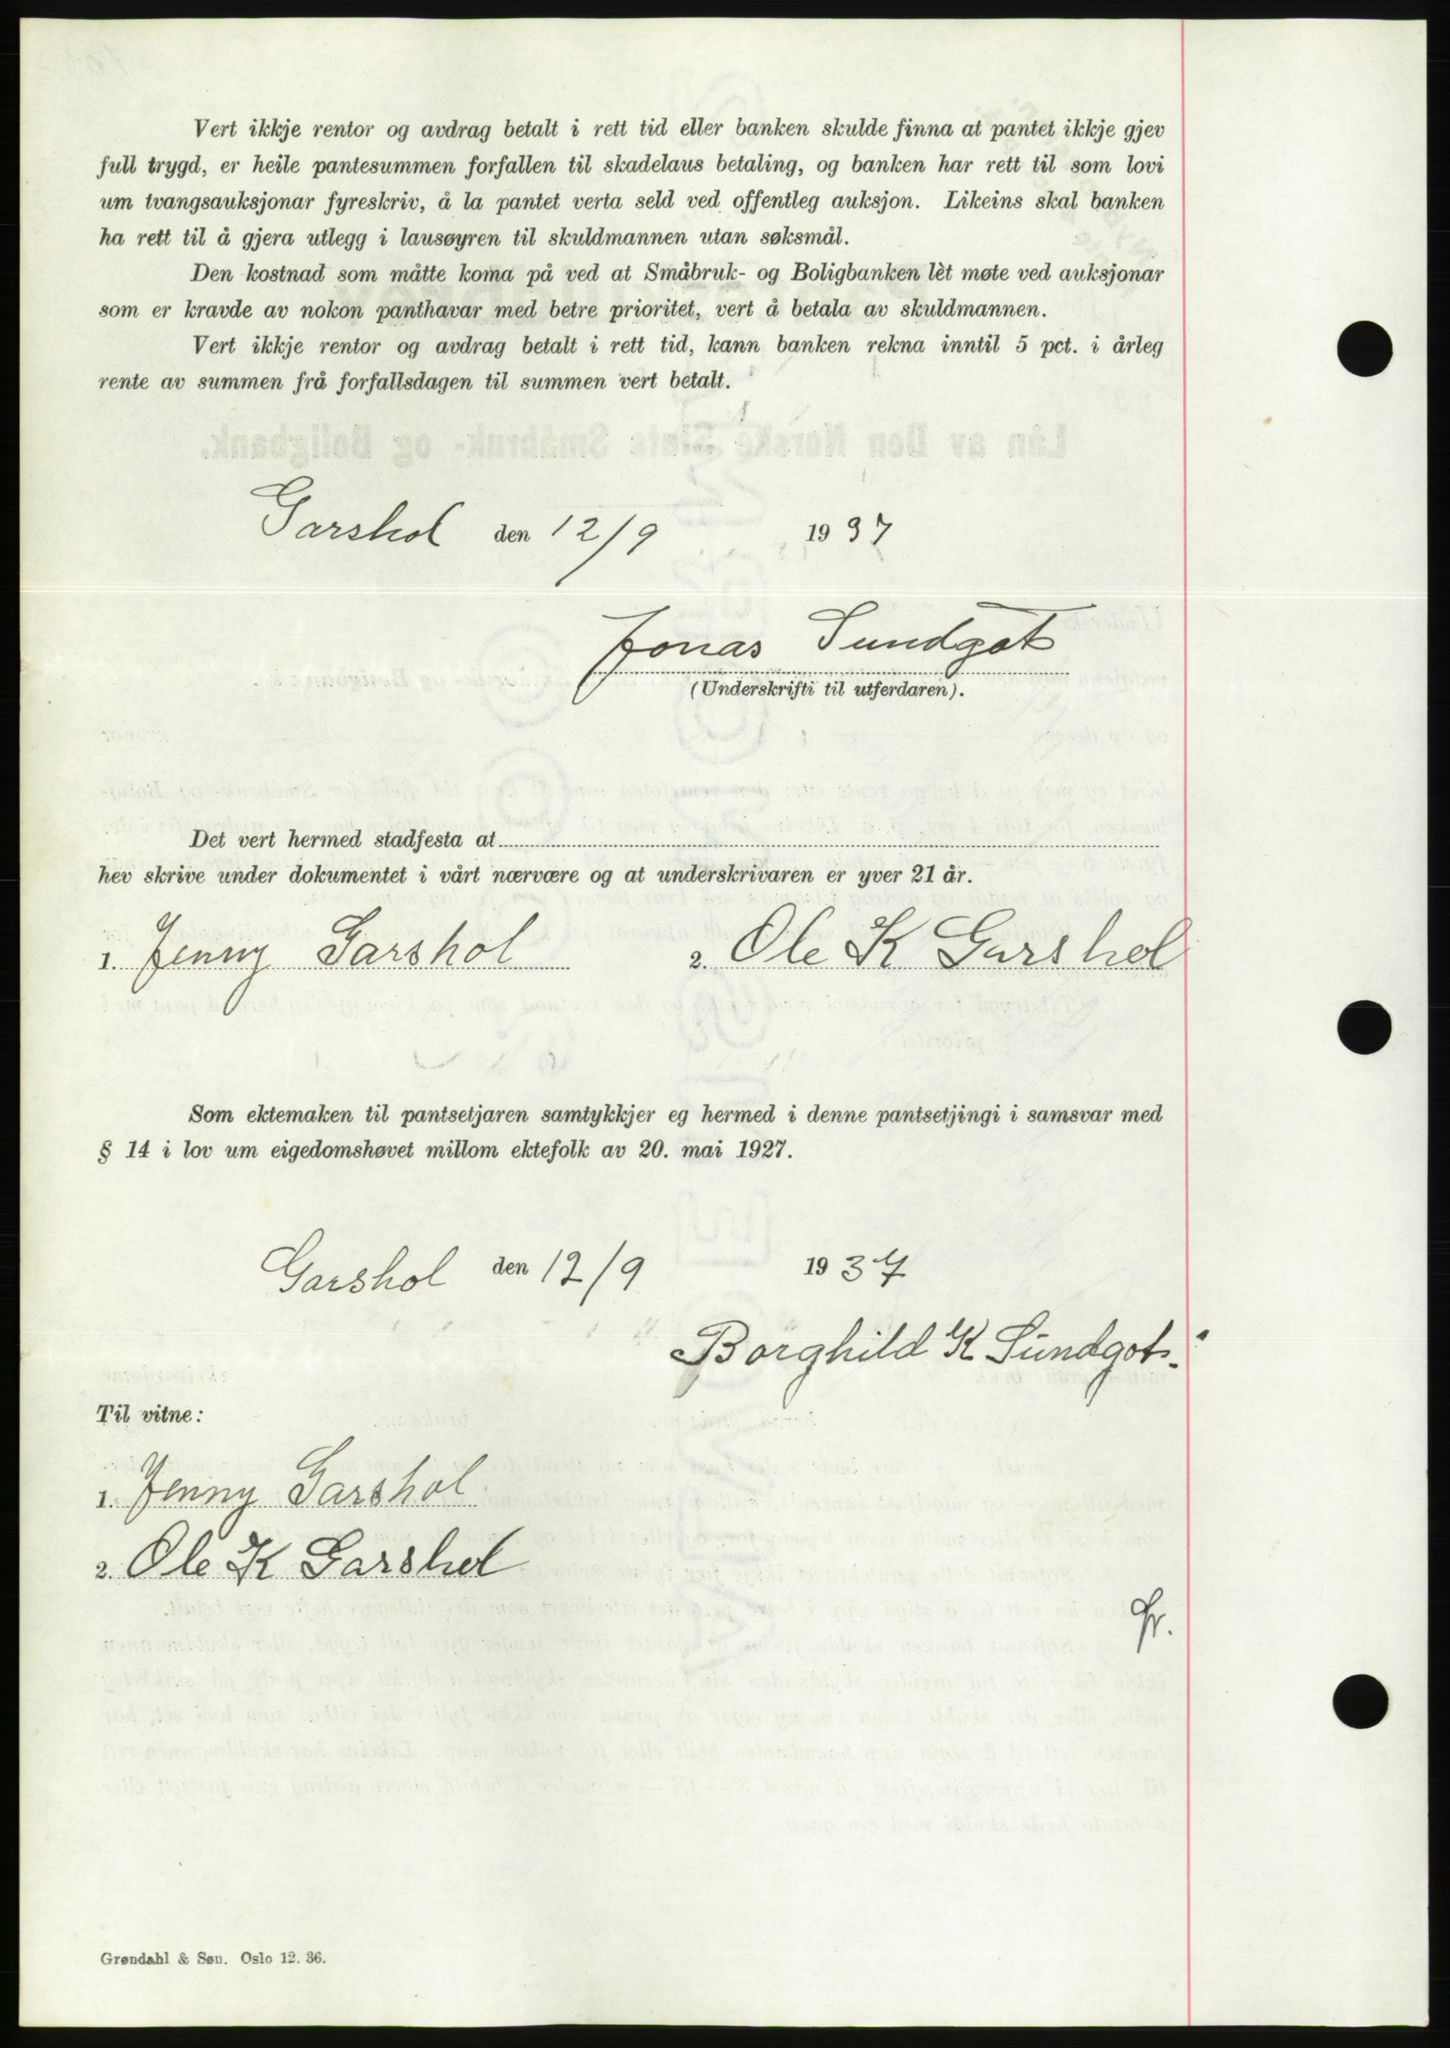 Vert ikkje rentor og avdrag betalt i rett tid eller banken skulde finna at pantet ikkje gjev
full trygd, er heile pantesummen forfallen til skadelaus betaling, og banken har rett til som lovi
um tvangsauksjonar fyreskriv, å la pantet verta seld ved offentleg auksjon. Likeins skal banken
ha rett til å gjera utlegg i lausøyren til skuldmannen utan søksmål.
Den kostnad som måtte koma på ved at Småbruk- og Boligbanken lèt møte ved auksjonar
som er kravde av nokon panthavar med betre prioritet, vert å betala av skuldmannen.
Vert ikkje rentor og avdrag betalt i rett tid, kann banken rekna inntil 5 pct. i årleg
rente av summen frå forfallsdagen til summen vert betalt.
Garshol den 12/9 1937
Jonas Sundgot
(Underskrifti til utferdaren).
Det vert hermed stadfesta at
hev skrive under dokumentet i vårt nærvære og at underskrivaren er yver 21 år.
1. Jenny Garshol 2. Ole K Garshol
Som ektemaken til pantsetjaren samtykkjer eg hermed i denne pantsetjingi i samsvar med
§ 14 i lov um eigedomshøvet millom ektefolk av 20. mai 1927.
Garshol den 12/9 1937
Borghild K Sundgot.
Til vitne:
1. Jenny Garshol
2. Ole K Garshol
Grøndahl & Søn. Oslo 12. 36.